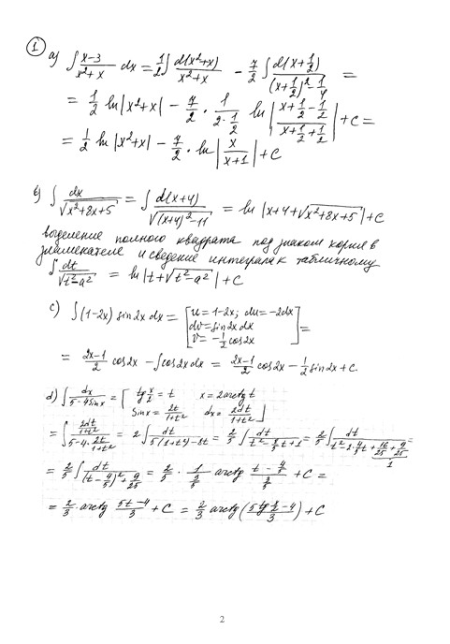 ① a) ∫ (x-3)/(x²+x) dx = 1/2 ∫ d(x²+x)/(x²+x) - 7/2 ∫ d(x+1/2)/((x+1/2)²-1/4) =
= 1/2 ln|x²+x| - 7/2 · 1/(2·1/2) ln |(x+1/2-1/2)/(x+1/2+1/2)| + C =
= 1/2 ln|x²+x| - 7/2 · ln |x/(x+1)| + C
b) ∫ dx/√(x²+8x+5) = ∫ d(x+4)/√((x+4)²-11) = ln |x+4+√(x²+8x+5)| + C
выделение полного квадрата под знаком корня в
знаменателе и сведение интеграла к табличному
∫ dt/√(t²-a²) = ln|t+√(t²-a²)| + C
c) ∫(1-2x) sin2x dx = [u=1-2x; du=-2dx
dv=sin2x dx
v=-1/2 cos2x] =
= (2x-1)/2 cos2x - ∫cos2x dx = (2x-1)/2 cos2x - 1/2 sin2x + C.
d) ∫ dx/(5-4sinx) = [tg x/2 = t x = 2arctg t
sinx = 2t/(1+t²) dx = 2dt/(1+t²)]
= ∫ (2dt/(1+t²))/(5-4·2t/(1+t²)) = 2∫ dt/(5(1+t²)-8t) = 2/5 ∫ dt/(t²-8/5 t+1) = 2/5 ∫ dt/(t²-2·4/5 t+16/25+9/25) =
= 2/5 ∫ dt/((t-4/5)²+9/25) = 2/5 · 1/(3/5) arctg (t-4/5)/(3/5) + C =
= 2/3 · arctg (5t-4)/3 + C = 2/3 arctg((5tg x/2 -4)/3) + C
2